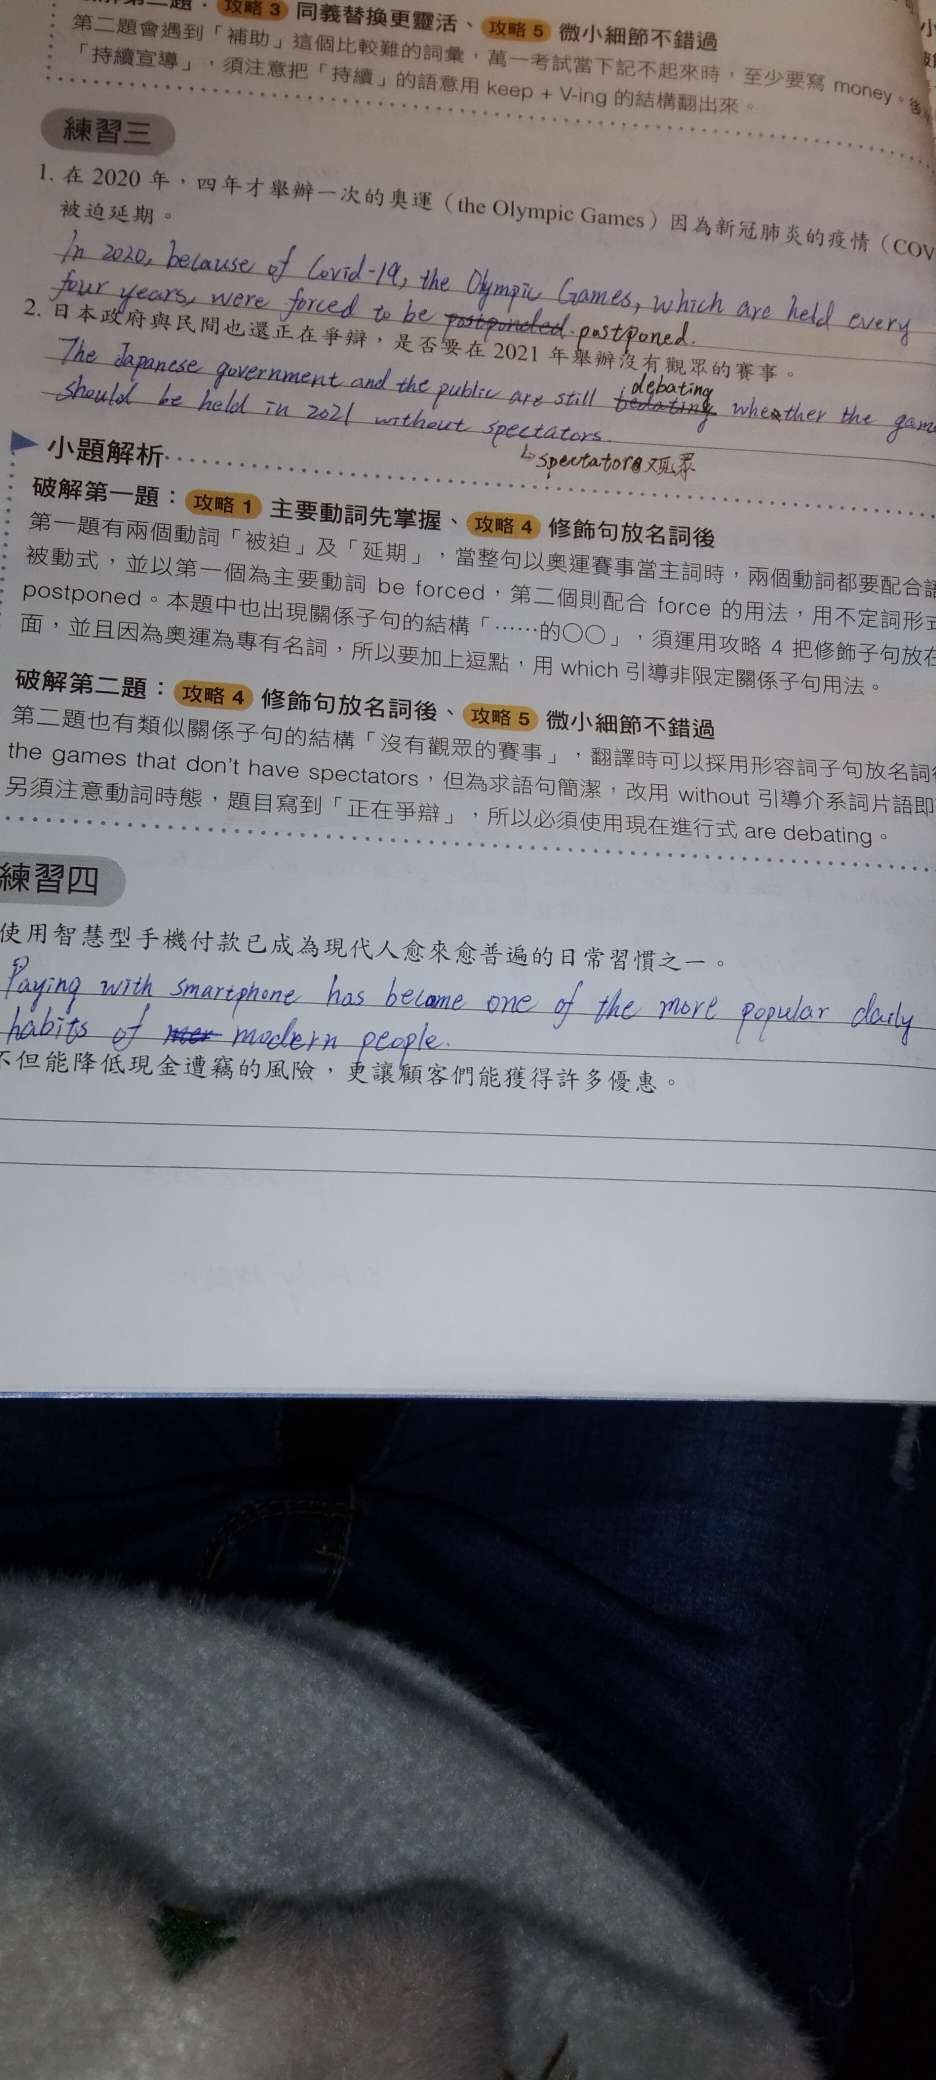 攻略 3 同義替換更靈活、攻略 5 微小細節不錯過
第二題會遇到「補助」這個比較難的詞彙，萬一考試當下記不起來時，至少要寫 money。
「持續宣導」，須注意把「持續」的語意用 keep + V-ing 的結構翻出來。
練習三
1. 在 2020 年，四年才舉辦一次的奧運（the Olympic Games）因為新冠肺炎的疫情（COV
被迫延期。
In 2020, because of Covid-19, the Olympic Games, which are held every
four years, were forced to be postponded. postponed.
2. 日本政府與民間也還正在爭辯，是否要在 2021 年舉辦沒有觀眾的賽事。
debating
The Japanese government and the public are still bedating whether the game
should be held in 2021 without spectators.
spectator
小題解析
破解第一題：攻略 1 主要動詞先掌握、攻略 4 修飾句放名詞後
第一題有兩個動詞「被迫」及「延期」，當整句以奧運賽事當主詞時，兩個動詞都要配合
被動式，並以第一個為主要動詞 be forced，第二個則配合 force 的用法，用不定詞形
postponed。本題中也出現關係子句的結構「……的○○」，須運用攻略 4 把修飾子句放在
面，並且因為奧運為專有名詞，所以要加上逗點，用 which 引導非限定關係子句用法。
破解第二題：攻略 4 修飾句放名詞後、攻略 5 微小細節不錯過
第二題也有類似關係子句的結構「沒有觀眾的賽事」，翻譯時可以採用形容詞子句放名詞
the games that don't have spectators，但為求語句簡潔，改用 without 引導介系詞片語即
另須注意動詞時態，題目寫到「正在爭辯」，所以必須使用現在進行式 are debating。
練習四
使用智慧型手機付款已成為現代人愈來愈普遍的日常習慣之一。
Paying with smartphone has become one of the more popular daily
habits of modern people.
不但能降低現金遭竊的風險，更讓顧客們能獲得許多優惠。